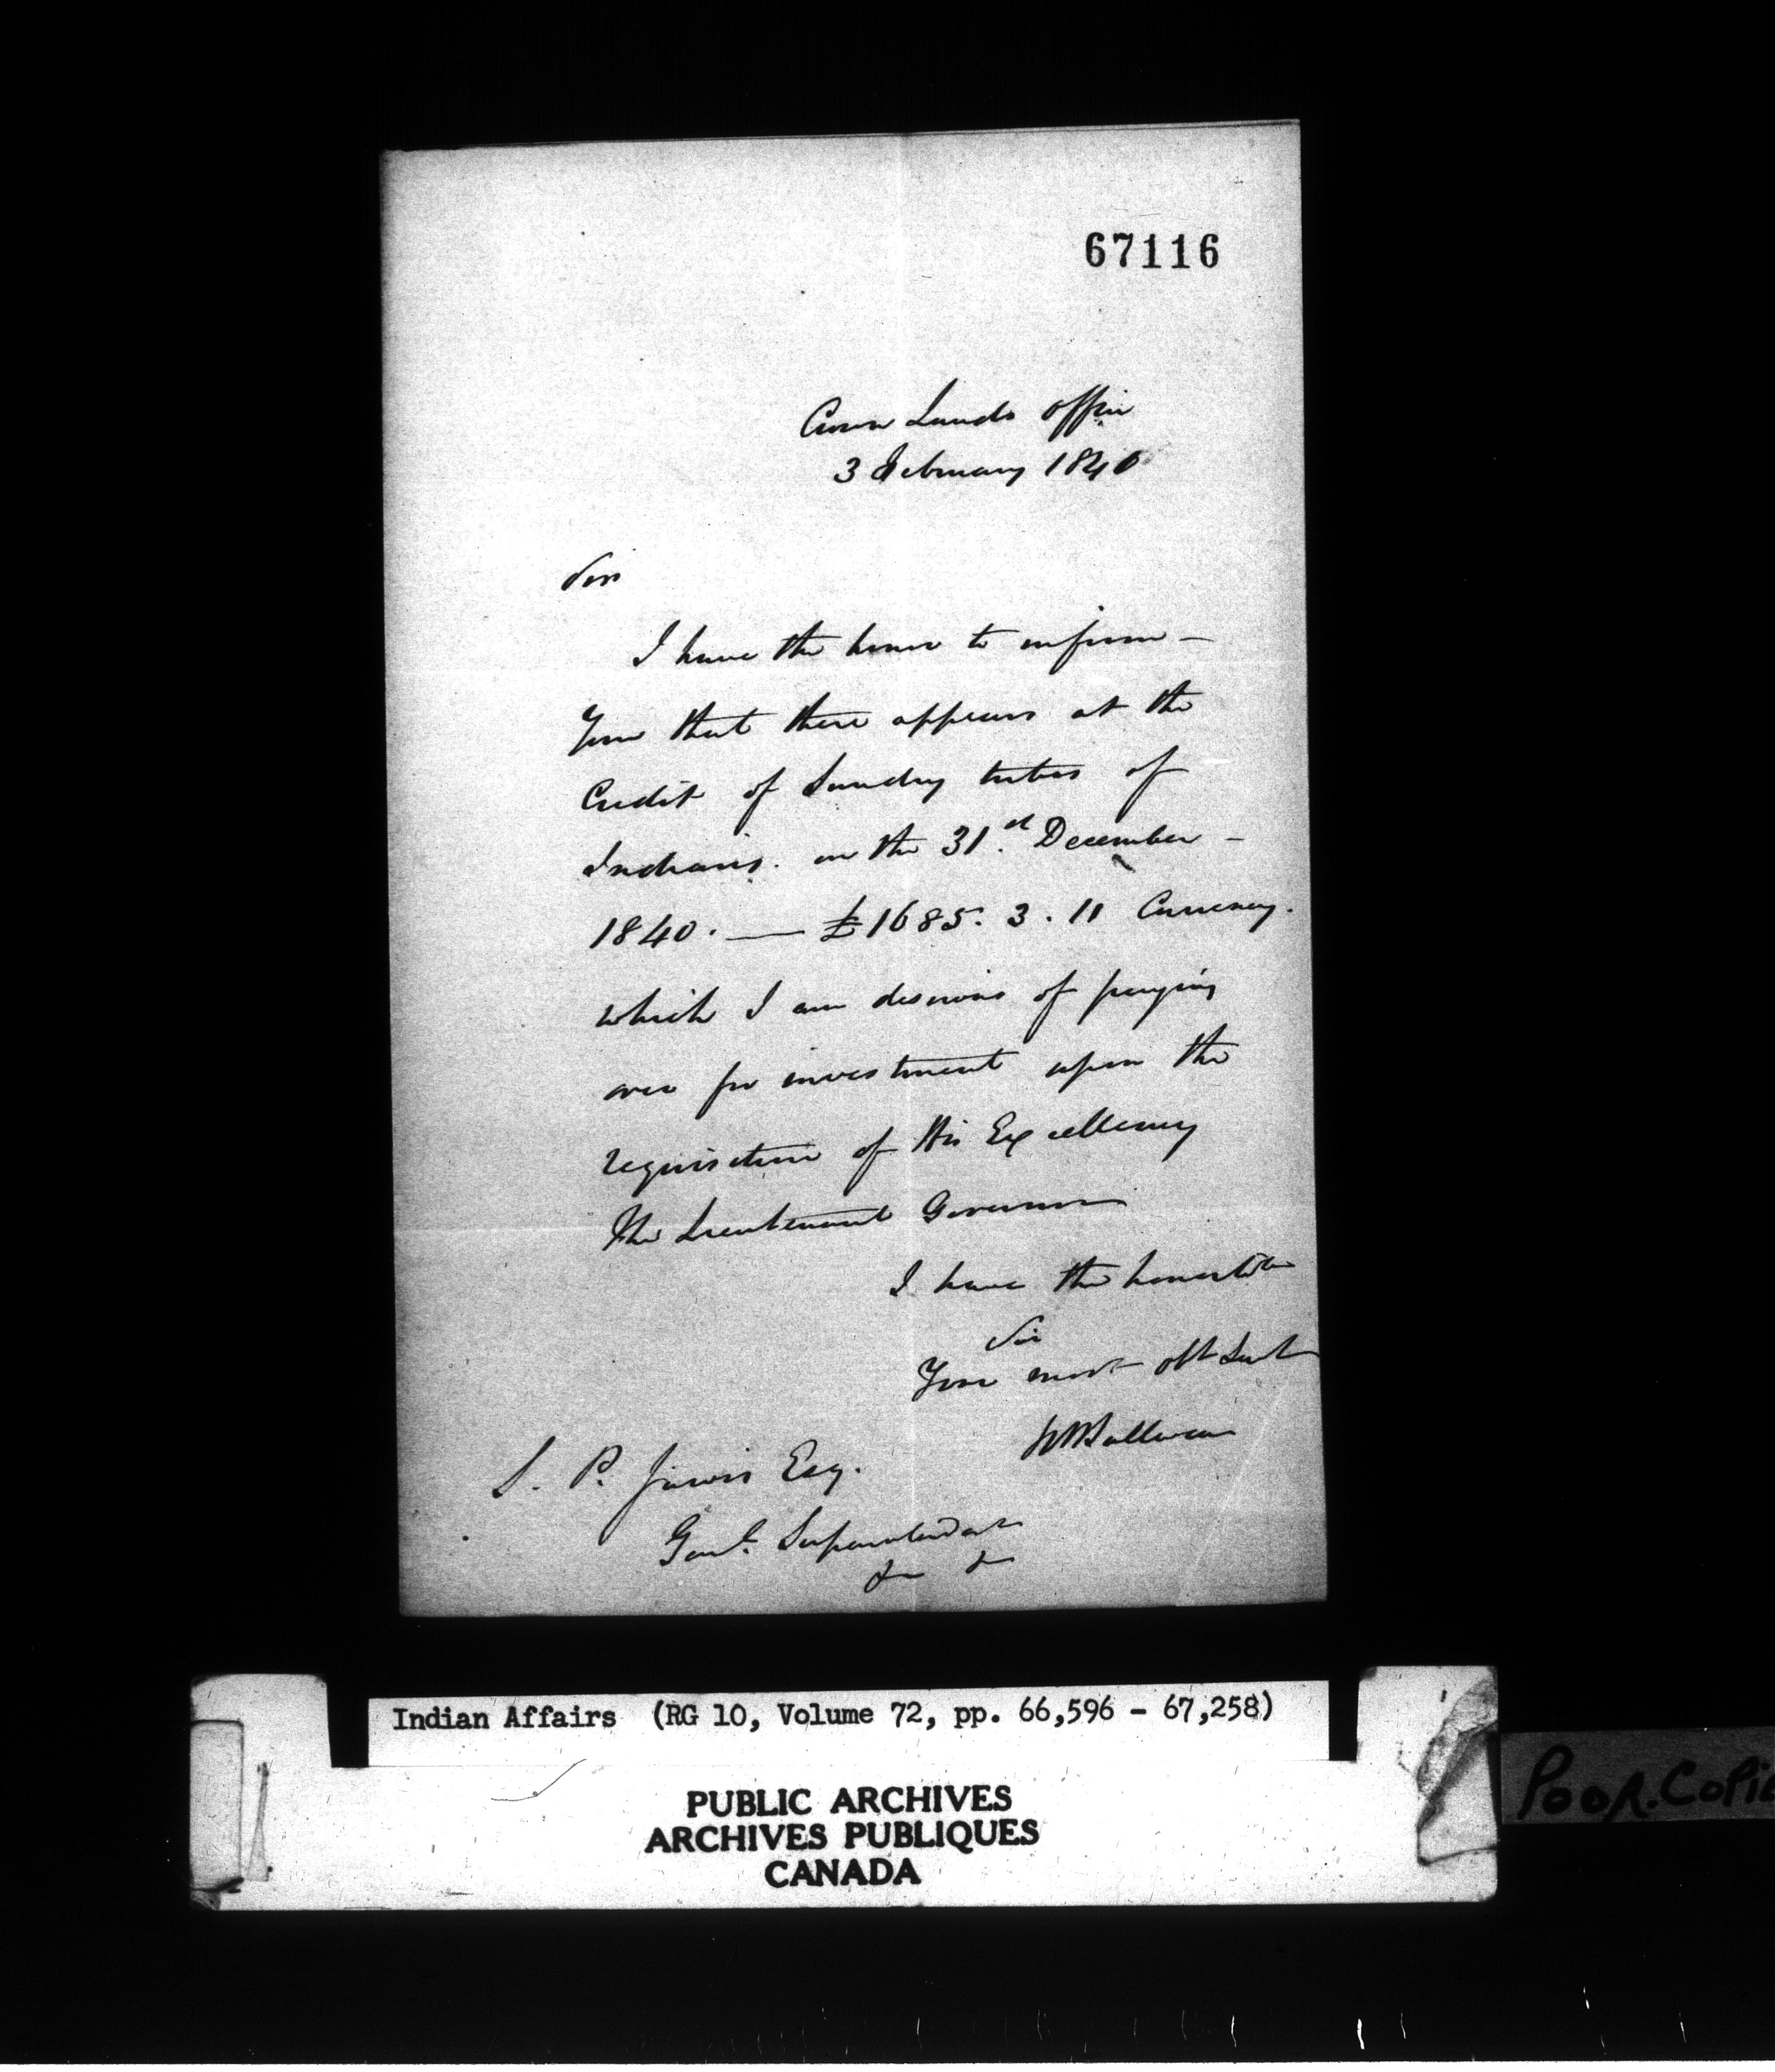 67116
Crown Lands Office
3 February 1840
Sir
I have the honor to inform –
You that there appears at the
Credit of Sundry tribes of
Indians. on the 31st December –
1840. — £1685. 3. 11 Currency.
which I am desirous of paying
over for investment upon the
requisition of His Excellency
The Lieutenant Governor
I have the honor to be
Sir
Your most obt Servt
RBSullivan
S. P. Jarvis Esq.
Superintendent
& &
Indian Affairs (RG 10, Volume 72, pp. 66,596 - 67,258)
PUBLIC ARCHIVES
ARCHIVES PUBLIQUES
CANADA
POOR.COPIE